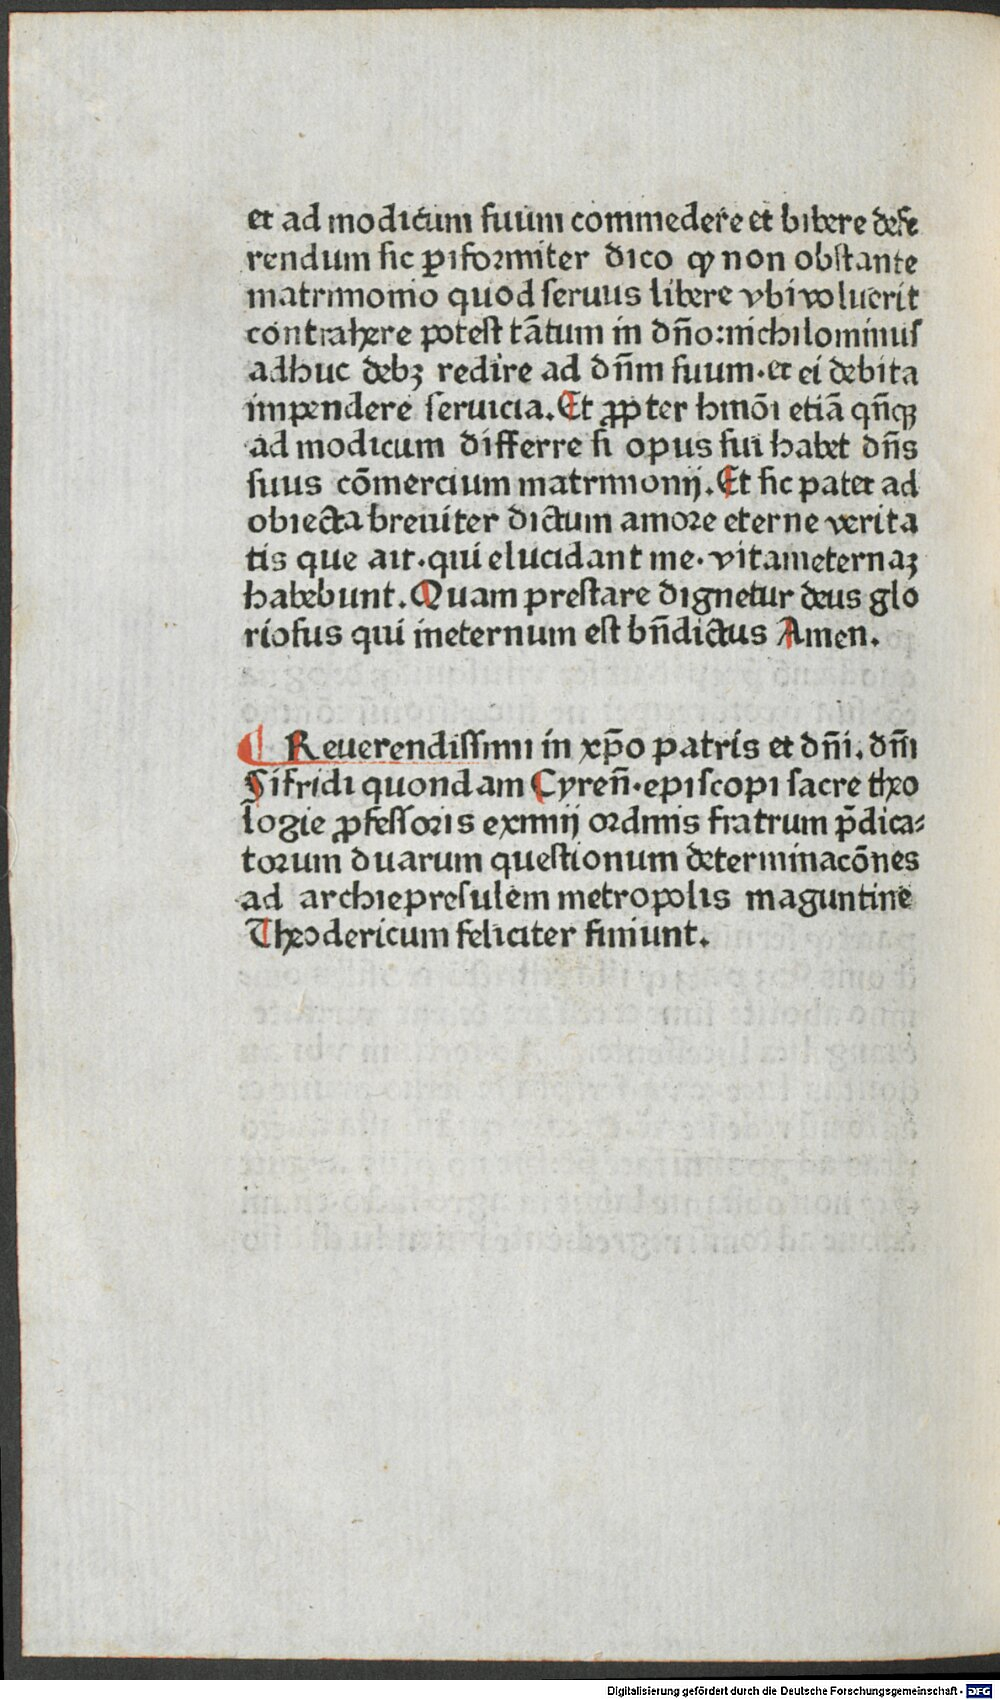 et ad modicum suum commedere et bibere defe
rendum sic ꝑiformiter dico ꝙ non obstante
matrimonio quod seruus libere vbi voluerit
contrahere potest tātum in dn̄o: nichilominus
adhuc debꝫ redire ad dn̄m suum. et ei debita
impendere seruicia. Et ꝓpter hmōi etiā qn̄qꝫ
ad modicum differre si opus sui habet dn̄s
suus cōmercium matrimonij. Et sic patet ad
obiecta breuiter dictum amore eterne verita
tis que ait. qui elucidant me. vitam eternaꝫ
habebunt. Quam prestare dignetur deus glo
riosus qui in eternum est bn̄dictus Amen.
¶ Reuerendissimi in xp̄o patris et dn̄i. dn̄i
Sifridi quondam Cyren̄. episcopi sacre theo
logie ꝓfessoris eximij ordinis fratrum p̄dica⸗
torum duarum questionum determinacōnes
ad archiepresulem metropolis maguntine
Theodericum feliciter finiunt.
Digitalisierung gefördert durch die Deutsche Forschungsgemeinschaft - DFG